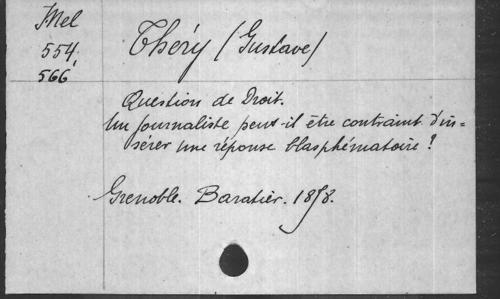 Mel
554,
566
Théry (Gustave)
Question de Droit.
Un journaliste peut-il être contraint d'in-
sérer une réponse blasphématoire?
Grenoble. Baratier.